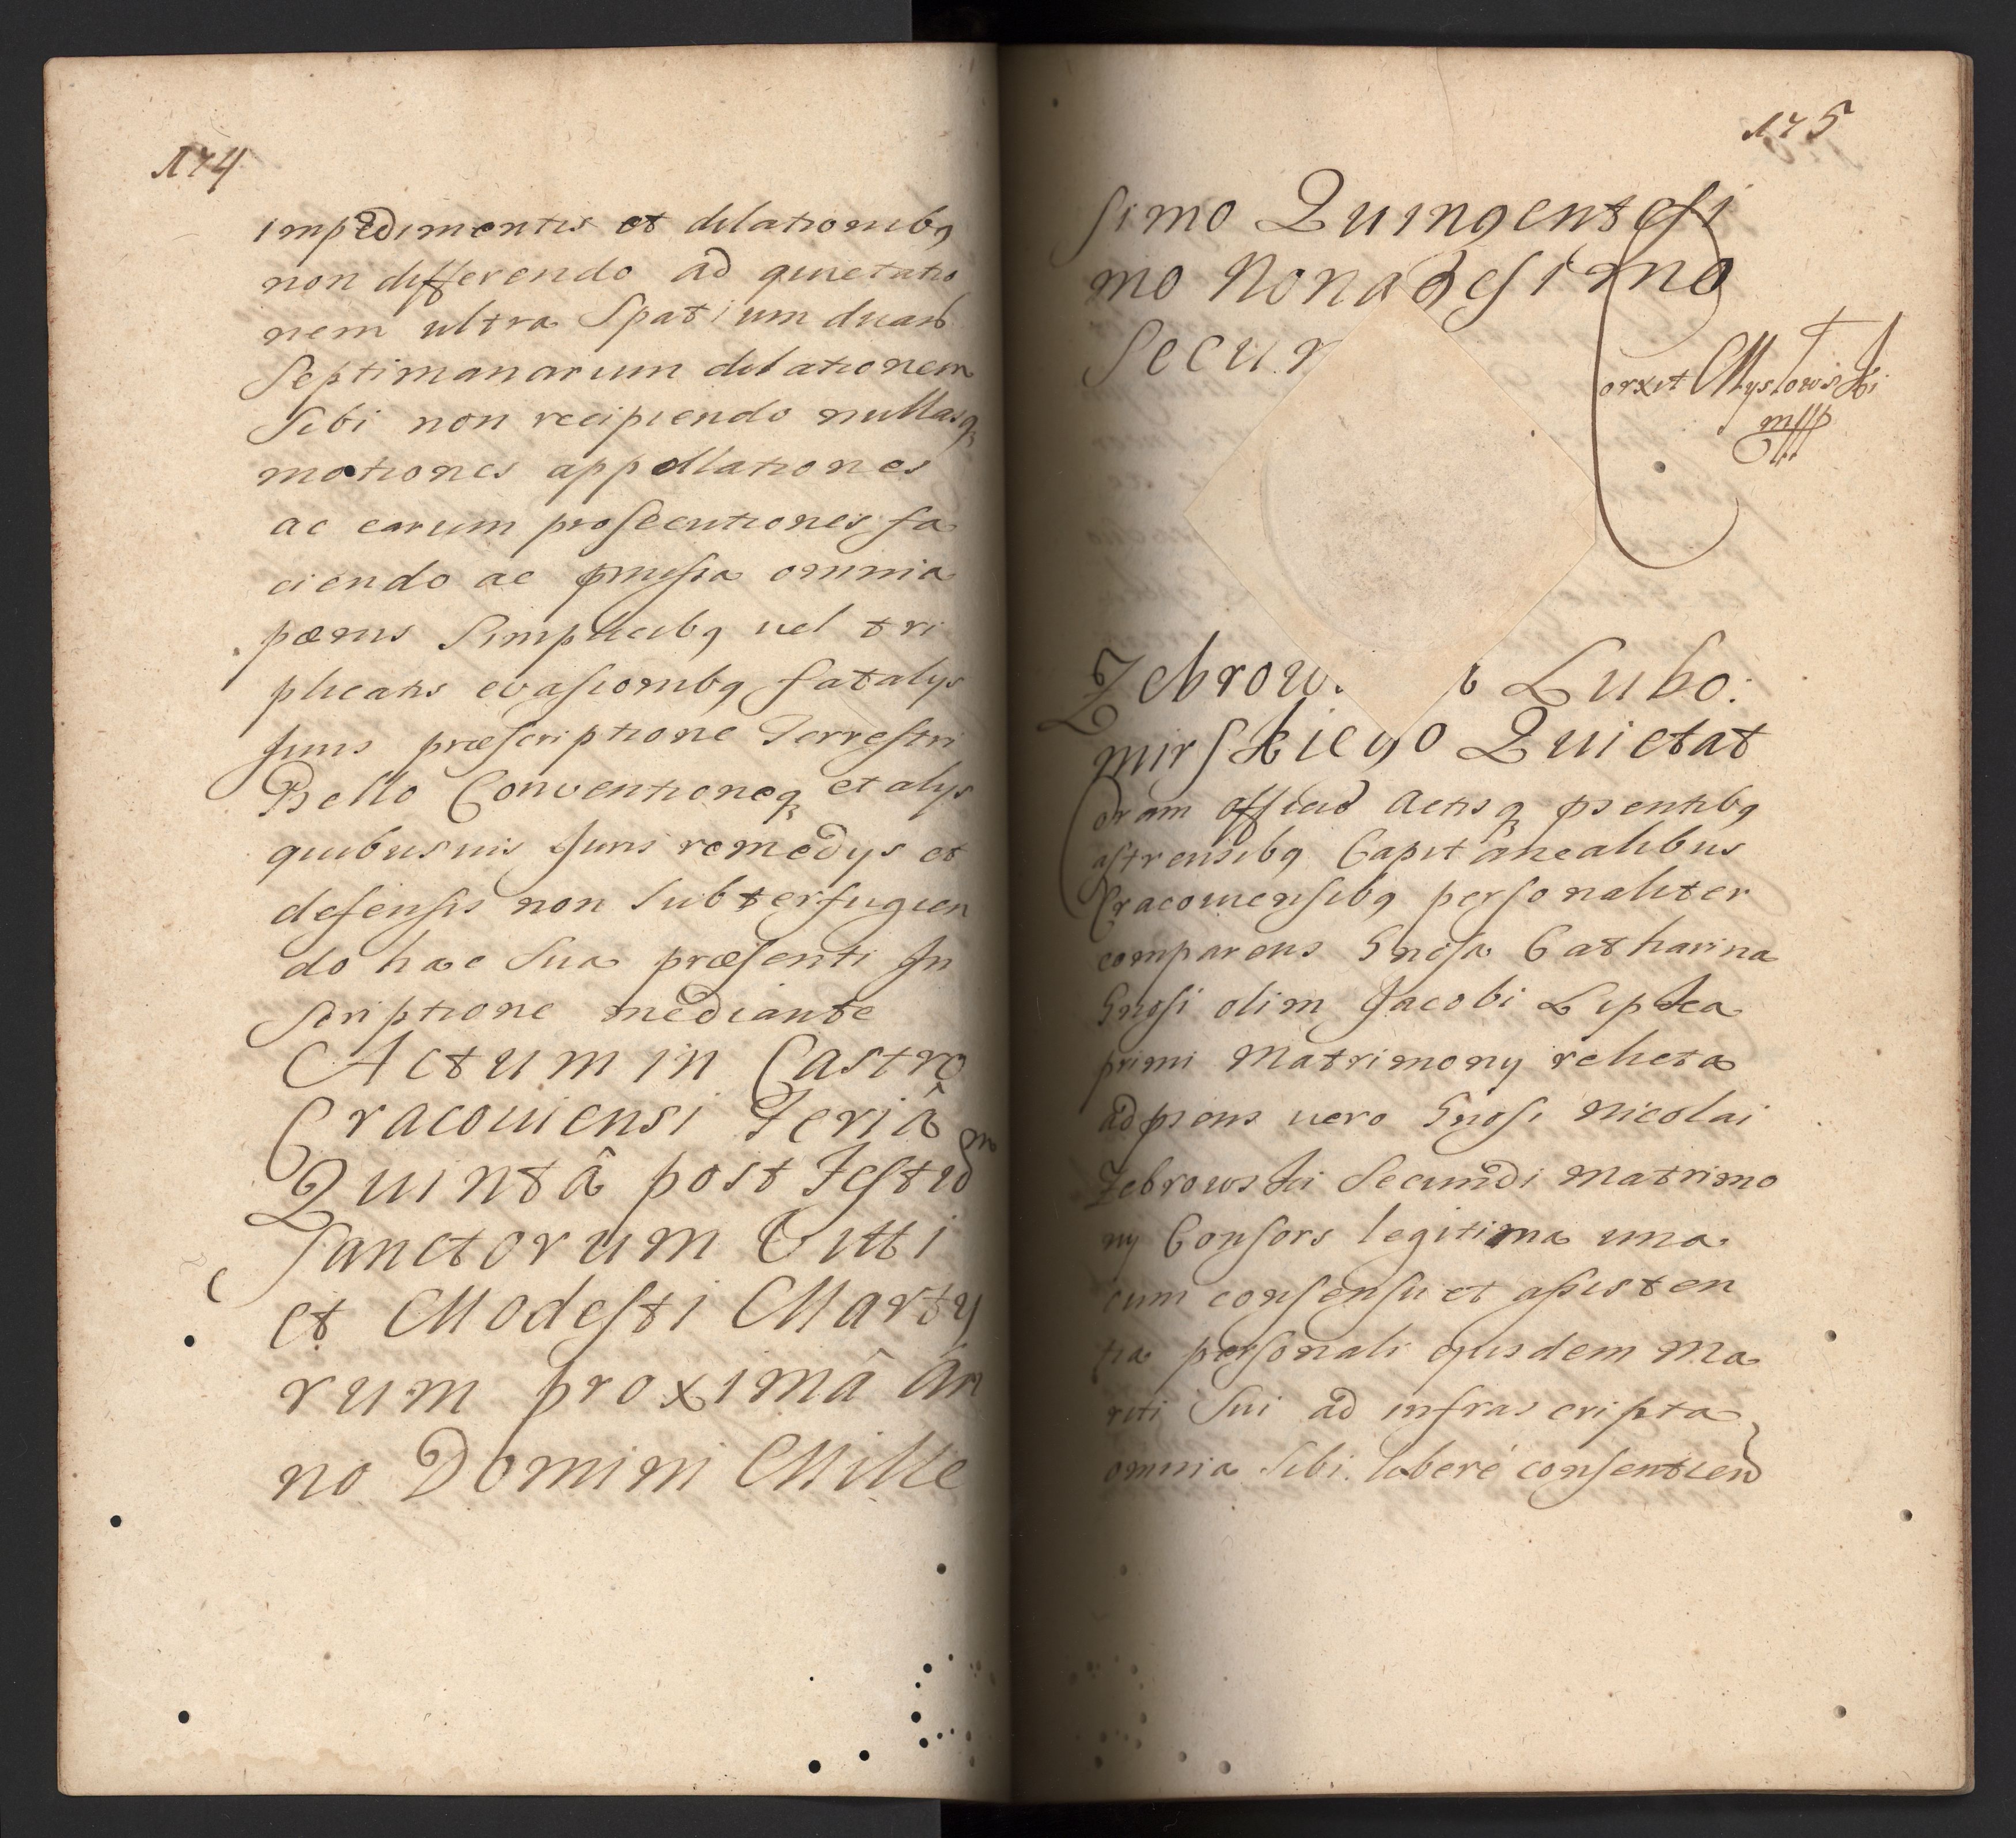 174
impedimentis et dilationibq
non differendo ad quietatio
nem ultra Spatium duarb
Septimanarum dilationem
Sibi non recipiendo nullasq
motiones appellationes
ac earum prosecutiones fa
ciendo ac pmissa omnia
pœnis Simplicibq vel tri
plicatis evasionibq fatalys
Juris præscriptione Terrestri
Bello Conventioneq et alys
quibusuis Juris remedys et
defensis non Subterfugien
do hac Sua præsenti In
scriptione mediante
Actum in Castro
Cracouiensi Feriâ
Quintâ post Festum
Sanctorum Viti
et Modesti Marty
rum proximâ An
no Domini Mille
175
simo Quingentesi
mo Nonagesimo
Secun
orxit Mysłowski
mpp
Zebrow. Lubo:
mirskiego Quietat
oram officio Actisq psentibq
astrensibq Capitanealibus
Cracouiensibq personaliter
comparens Gnosa Catharina
Gnosi olim Jacobi Lipka
primi Matrimony relicta
ad psens vero Gnosi Nicolai
Zebrowski Secundi Matrimo
ny Consors legitima una
cum consensu et assisten
tia personali ejusdem Ma
riti Sui ad infrascripta
omnia Sibi liberè consentien